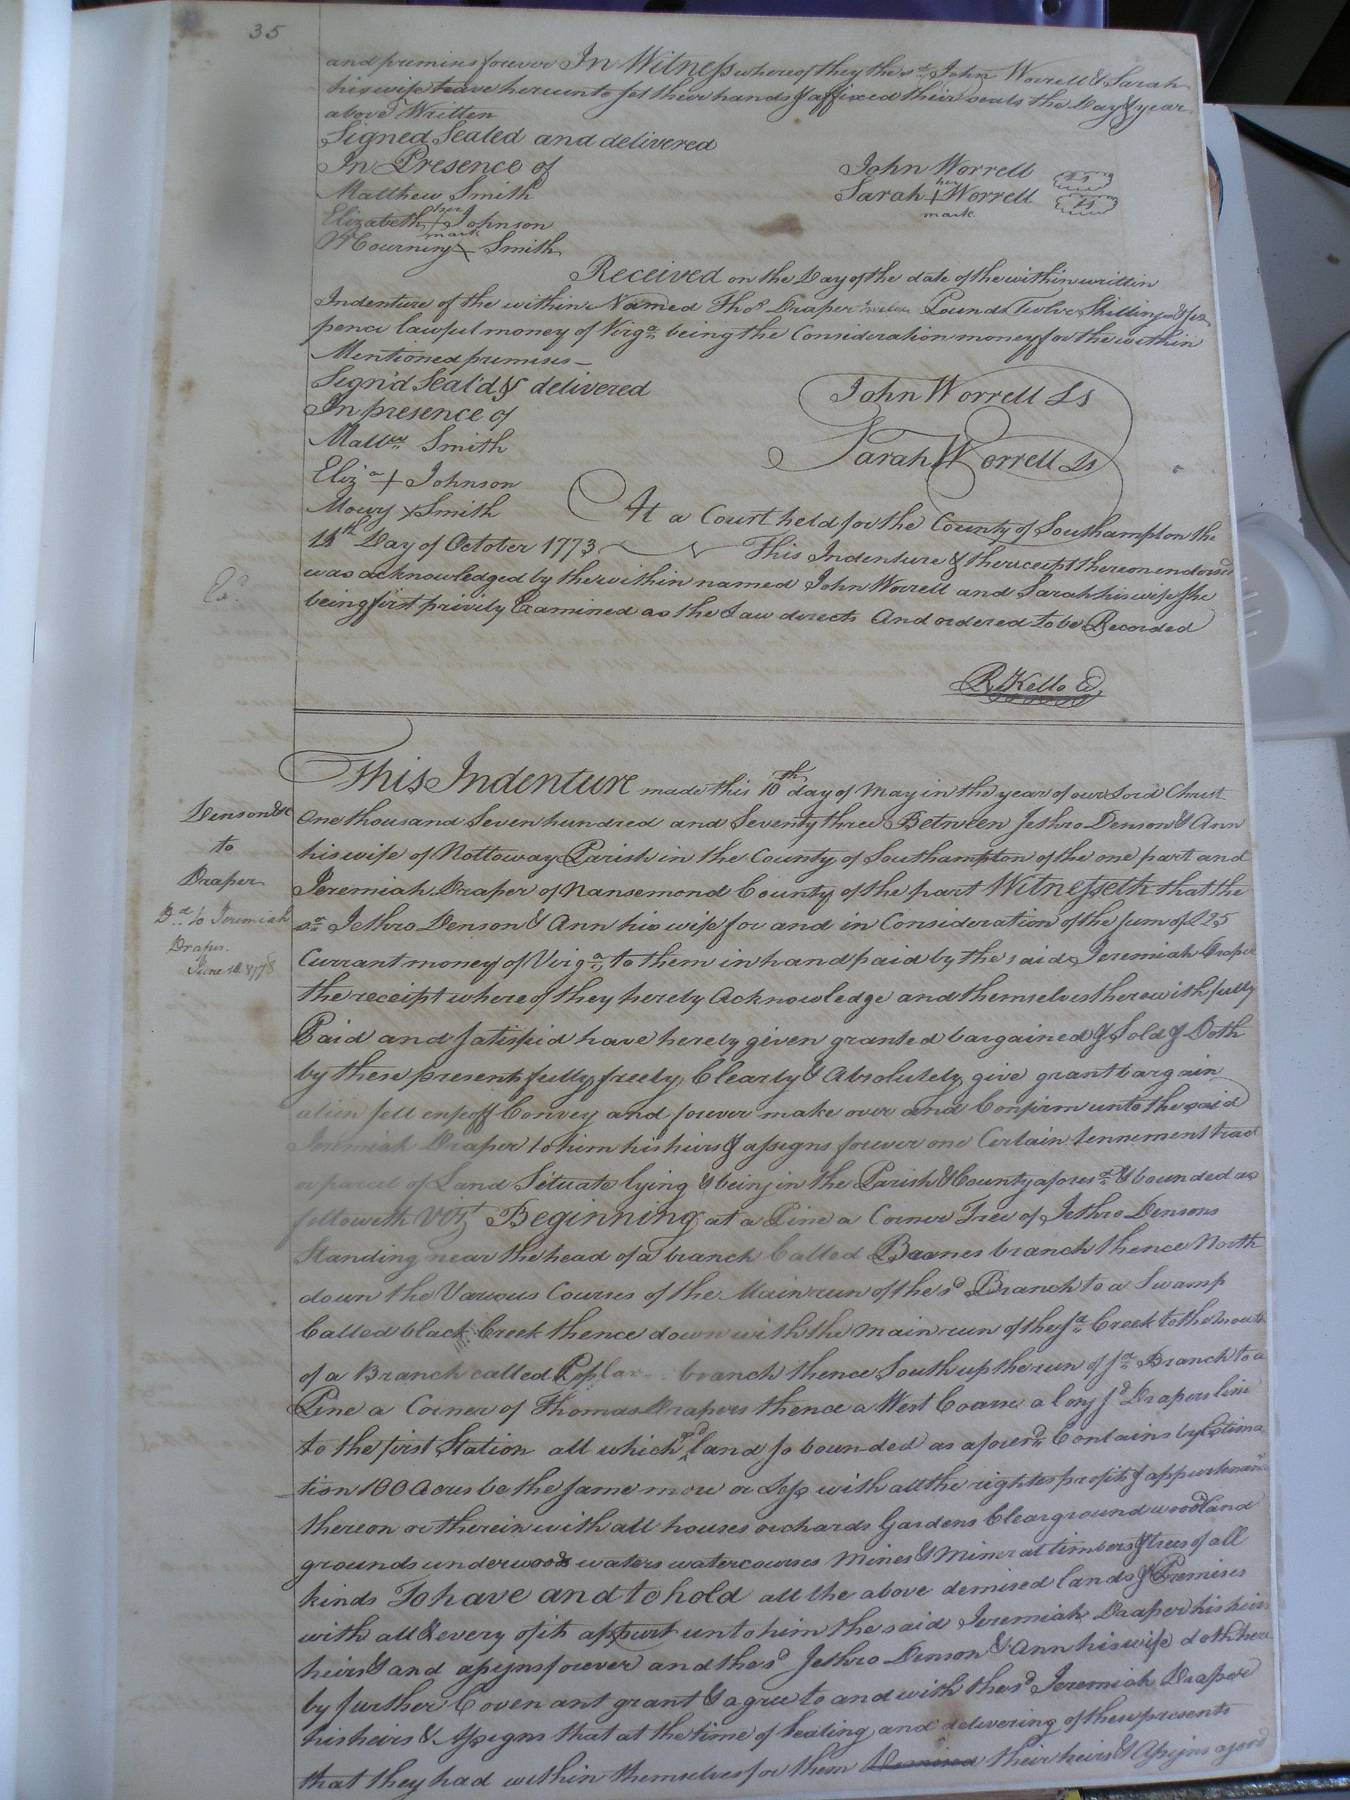 35
and premises forever In Witness whereof they the sd. John Worrell & Sarah
his wife have hereunto set their hands & affixed their seals the Day & year
above Written
Signed Sealed and delivered
In Presence of
John Worrell LS
Matthew Smith
Sarah her + mark Worrell LS
Elizabeth her + mark Johnson
Mourning + Smith
Received on the Day of the date of the within written
Indenture of the within Named Thos. Draper Pounds Twelve Shillings & six
pence lawful money of Virga. being the Consideration money for the within
Mentioned premises
Sign'd Seal'd & delivered
John Worrell Ls
In presence of
Matthw. Smith
Sarah Worrell Ls
Eliza. + Johnson
Mourg x Smith
At a Court held for the County of Southampton the
14th Day of October 1773
This Indenture & the receipt thereon endorsed
was acknowledged by the within named John Worrell and Sarah his wife she
Ed.
being first privily Examined as the Law directs And ordered to be Recorded
R. Kello C
This Indenture made this 10th day of May in the year of our Lord Christ
Denson &c
to
Draper
Dd. to Jeremiah
Draper
June 1778
One thousand Seven hundred and Seventy three Between Jethro Denson & Ann
his wife of Nottoway Parish in the County of Southampton of the one part and
Jeremiah Draper of Nansemond County of the part Witnesseth that the
sd. Jethro Denson & Ann his wife for and in Consideration of the sum of £25
Currant money of Virga. to them in hand paid by the said Jeremiah Draper
the receipt whereof they hereby Acknowledge and themselves therewith fully
Paid and satisfied have hereby given granted bargained & Sold & Doth
by these presents fully freely Clearly & Absolutely give grant bargain
alien sell enfeoff Convey and forever make over and Confirm unto the said
Jeremiah Draper to him his heirs & assigns forever one Certain tennement tract
or parcel of Land Situate lying & being in the Parish & County aforesd. & bounded as
followeth Vizt. Beginning at a Pine a Corner Tree of Jethro Densons
Standing near the head of a branch Called branch thence North
down the Various Courses of the Main run of the sd Branch to a Swamp
Called black Creek thence down with the main run of the sd. Creek to the mouth
of a Branch called Poplar branch thence South up the run of sd. Branch to a
Pine a Corner of Thomas Drapers thence a West Coarse along sd Drapers line
to the first Station all which sd land so bounded as aforesd. Contains by Estima
tion 100 Acres be the same more or Less with all the rights profits & appurtenan
thereon or therein with all houses orchards Gardens Clear ground woodland
grounds underwoods waters watercourses Mines & Mineral timbers & trees of all
kinds To have and to hold all the above demised lands & Premises
with all & every of its appurt unto him the said Jeremiah Draper his heirs
heirs & and assigns forever and the sd Jethro Denson & Ann his wife doth here
by further Covenant grant & agree to and with the sd Jeremiah Draper
his heirs & Assigns that at the time of Sealing and delivering of these presents
that they had within themselves for them their heirs & Assigns